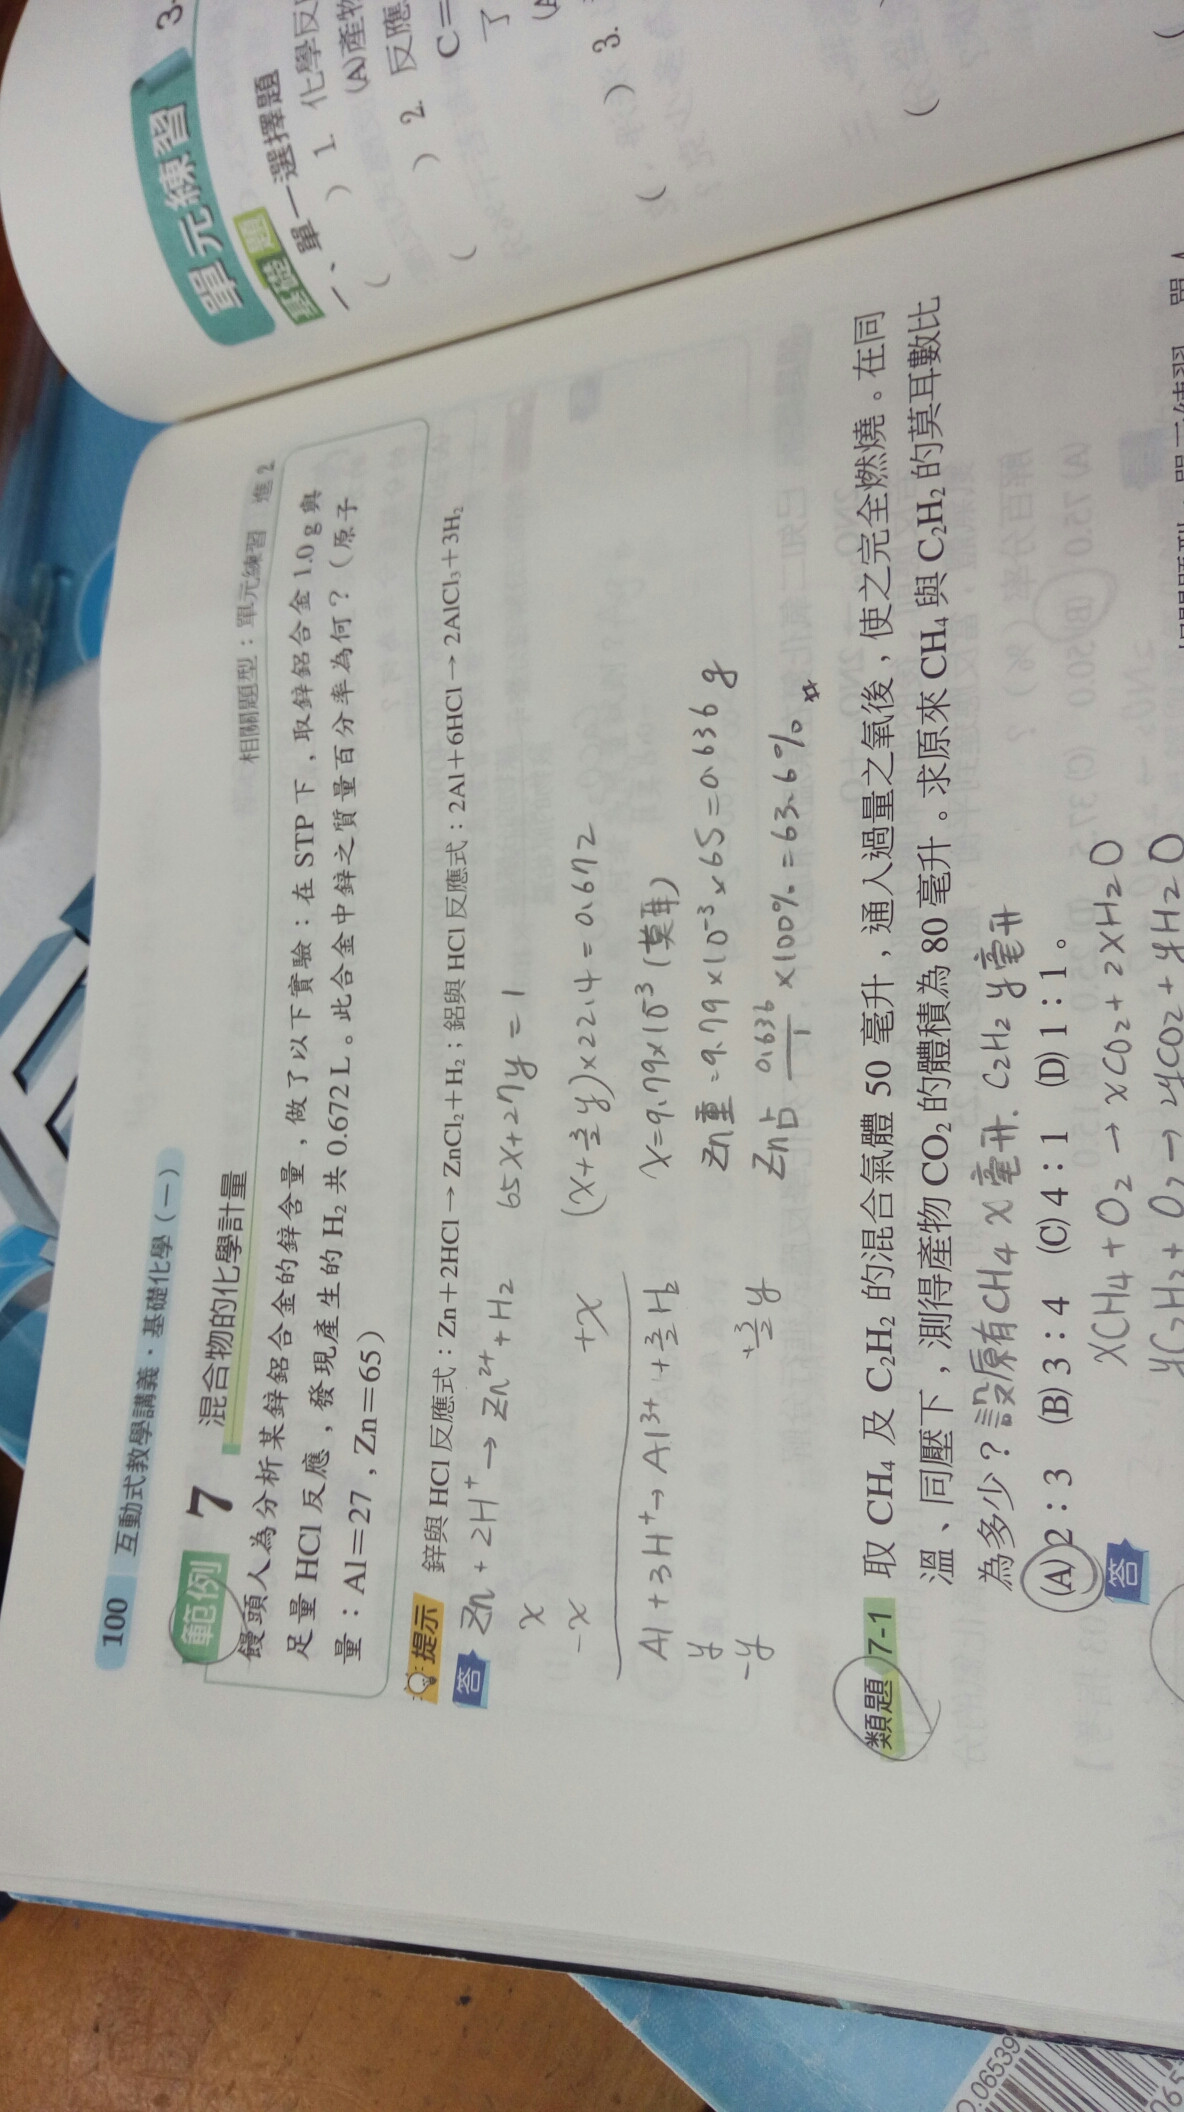 100 互動式教學講義．基礎化學（一）
範例 7 混合物的化學計量
相關題型：單元練習 進 2
饅頭人為分析某鋅鋁合金的鋅含量，做了以下實驗：在 STP 下，取鋅鋁合金 1.0 g 與
足量 HCl 反應，發現產生的 H₂ 共 0.672 L。此合金中鋅之質量百分率為何？（原子
量：Al＝27，Zn＝65）
提示 鋅與 HCl 反應式：Zn＋2HCl→ZnCl₂＋H₂；鋁與 HCl 反應式：2Al＋6HCl→2AlCl₃＋3H₂
答 Zn + 2H⁺ → Zn²⁺ + H₂
x
-x +x
Al + 3H⁺ → Al³⁺ + 3/2 H₂
y
-y +3/2 y
65x+27y=1
(x+3/2 y)×22.4=0.672
x=9.79×10⁻³(莫耳)
Zn重=9.79×10⁻³×65=0.636 g
Zn占 0.636/1 ×100%=63.6%
類題 7-1 取 CH₄ 及 C₂H₂ 的混合氣體 50 毫升，通入過量之氧後，使之完全燃燒。在同
溫、同壓下，測得產物 CO₂ 的體積為 80 毫升。求原來 CH₄ 與 C₂H₂ 的莫耳數比
為多少？設原有CH₄ x 毫升. C₂H₂ y 毫升
(A) 2：3 (B) 3：4 (C) 4：1 (D) 1：1。
答
xCH₄ + O₂ → xCO₂ + 2xH₂O
yC₂H₂ + O₂ → 2yCO₂ + yH₂O
單元練習
3.
基礎題
一、單一選擇題
( ) 1. 化學反
(A)產物
( ) 2. 反應
C=
了
( ) 3.
(A
(
(
0.06539